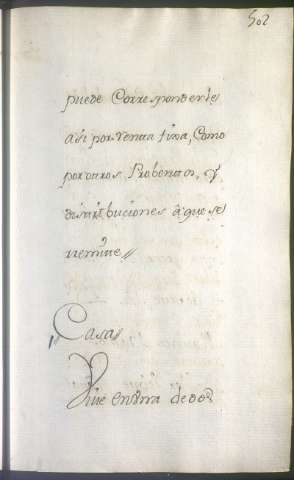 502
puede Corresponderle
asi por renta fixa, Como
por otros Probentos, y
distribuciones à que se
remite //
Casas
Vive en una de dos